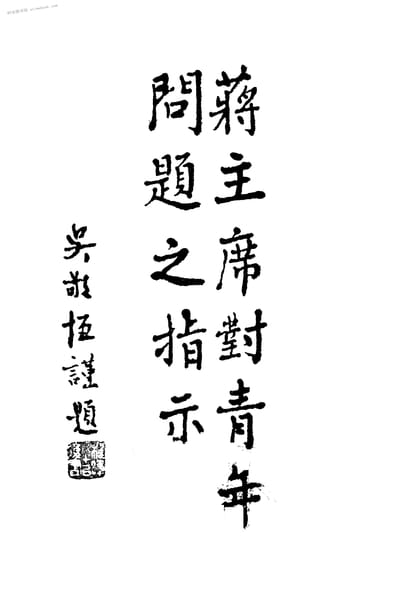 蔣主席對青年
問題之指示
吳敬恆謹題